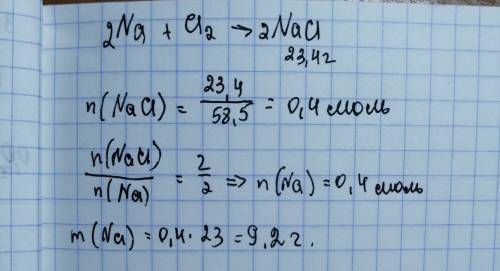 2Na + Cl2 → 2NaCl
23,4г
n(NaCl) = 23,4/58,5 = 0,4 моль
n(NaCl)/n(Na) = 2/2 => n(Na) = 0,4 моль
m(Na) = 0,4 · 23 = 9,2 г.